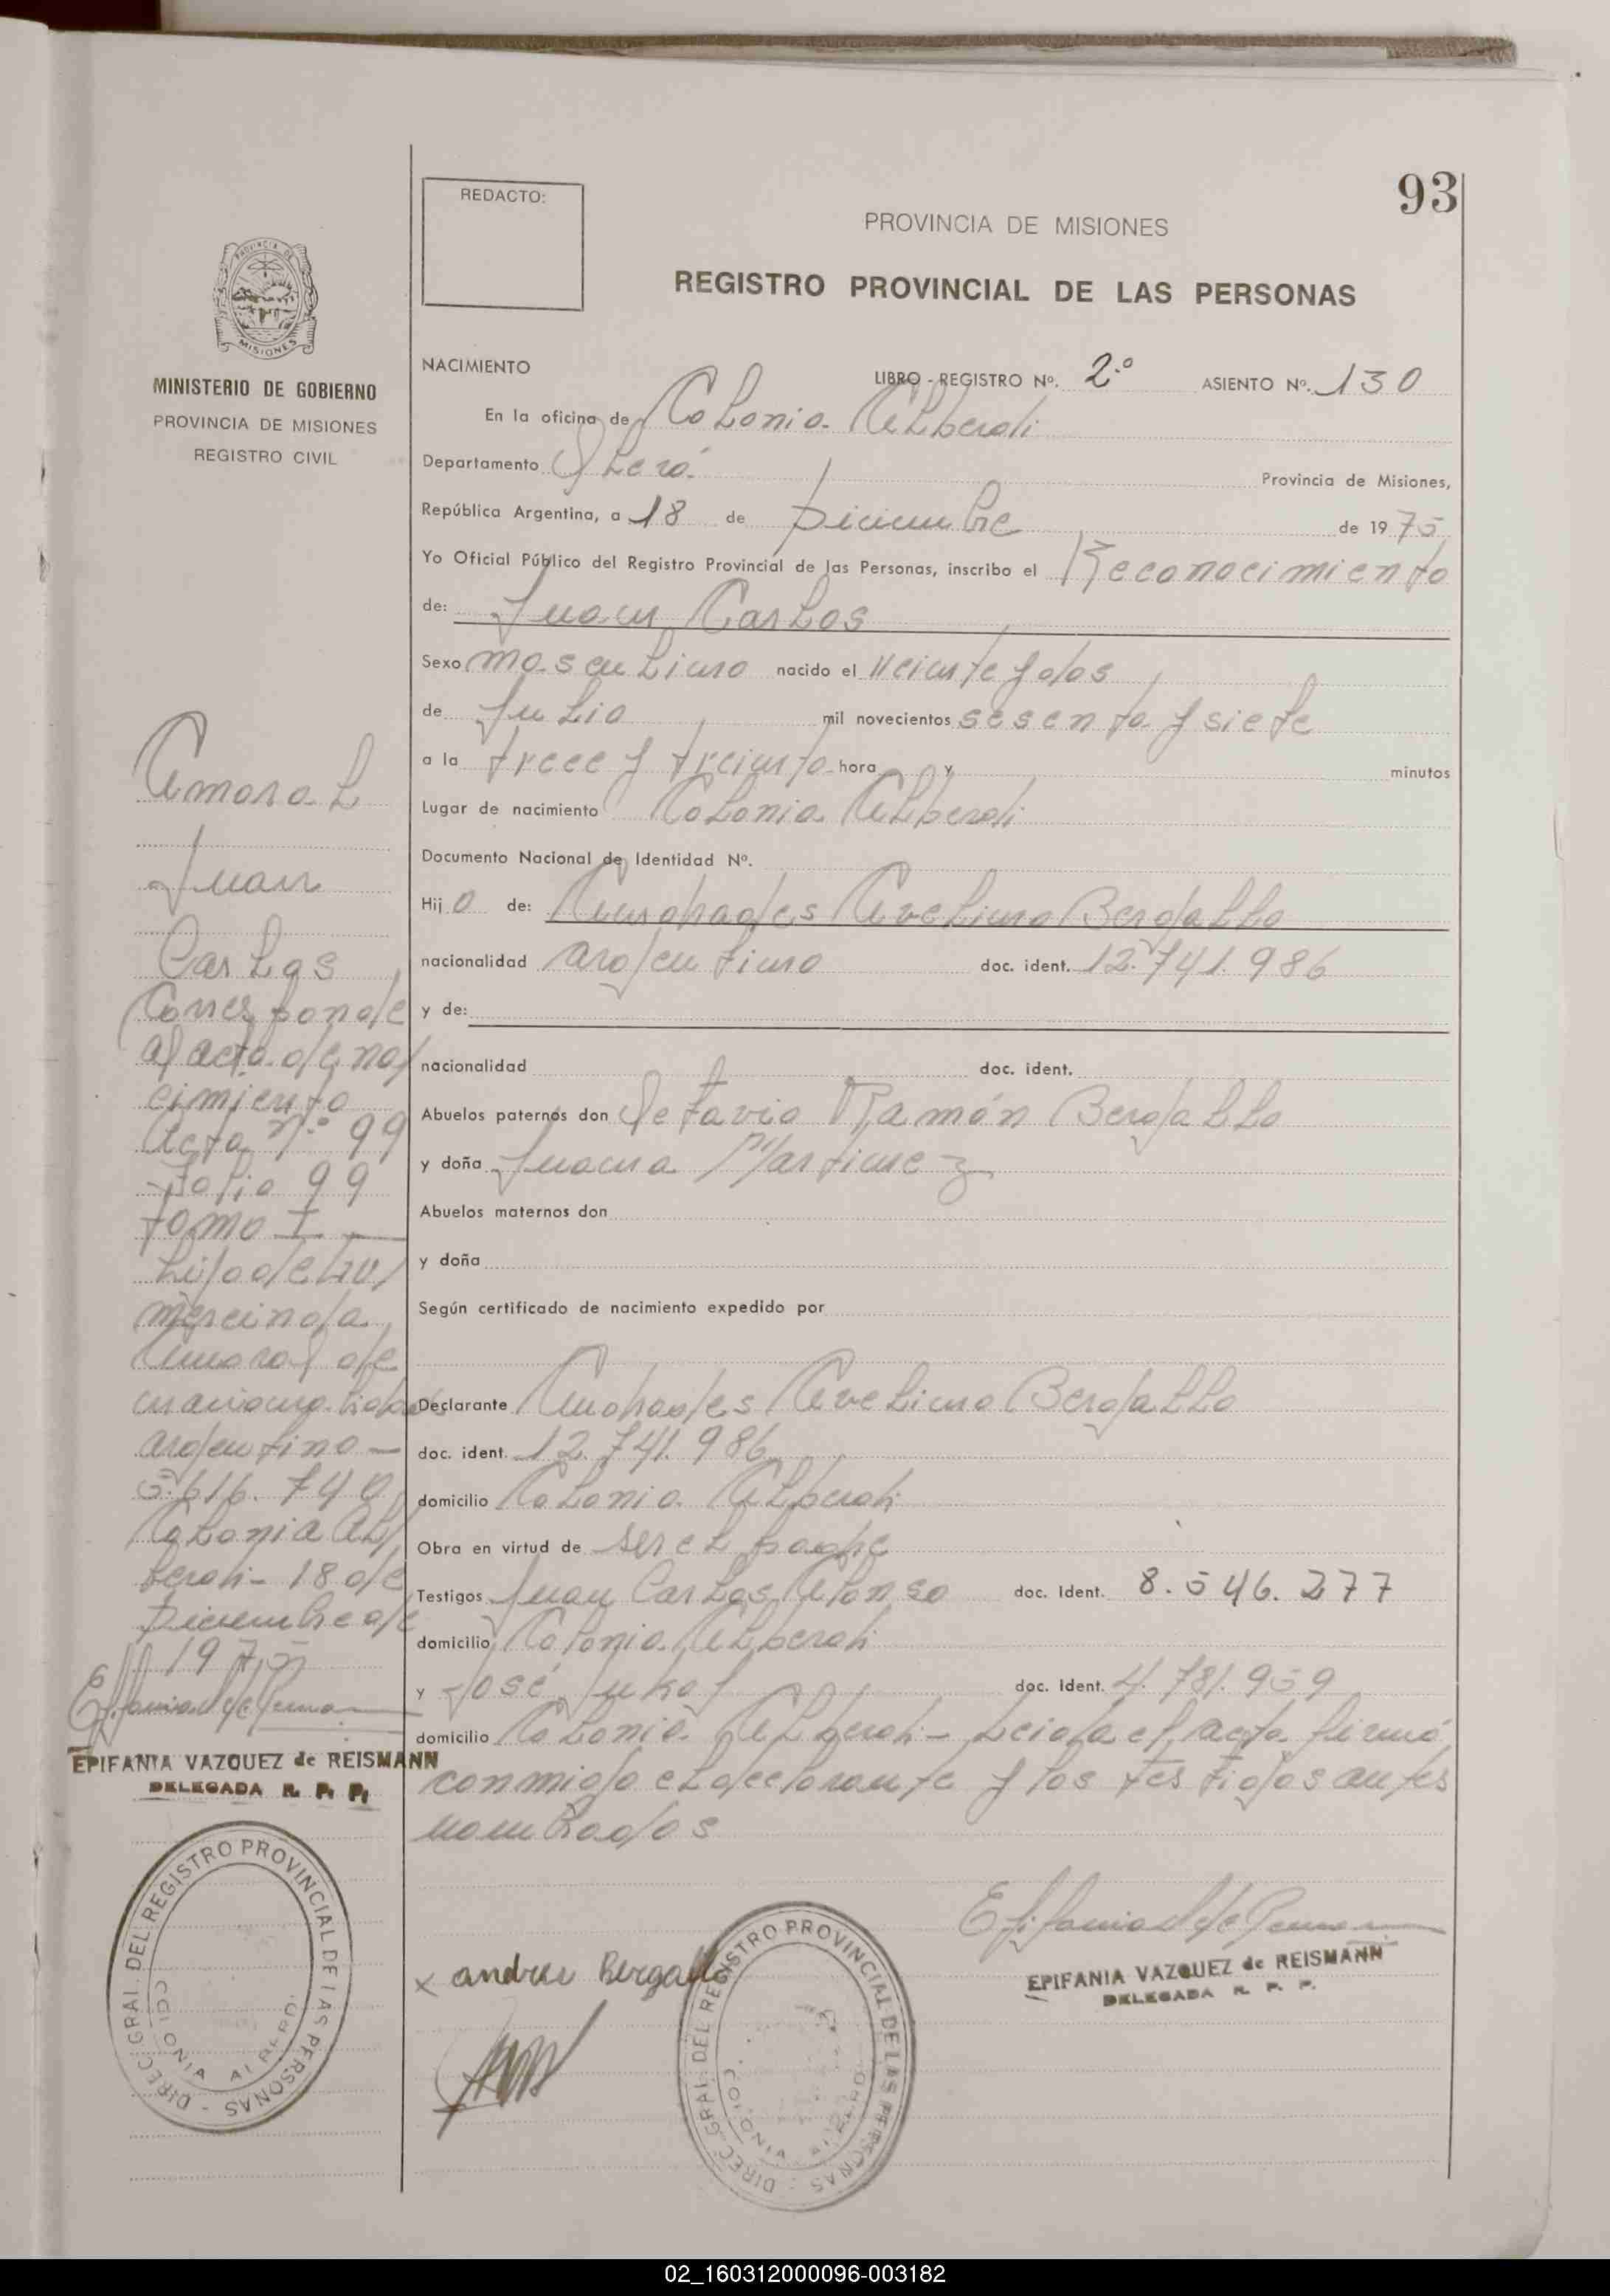 93
REDACTO:
PROVINCIA DE MISIONES
REGISTRO PROVINCIAL DE LAS PERSONAS
MISIONES
MINISTERIO DE GOBIERNO
PROVINCIA DE MISIONES
REGISTRO CIVIL
NACIMIENTO
LIBRO - REGISTRO Nº. 2º ASIENTO Nº. 130
En la oficina de Colonia Alberdi
Departamento Oberá Provincia de Misiones,
República Argentina, a 18 de Diciembre de 1975
Yo Oficial Público del Registro Provincial de las Personas, inscribo el Reconocimiento
de: Juan Carlos
Sexo masculino nacido el Veinte y dos
de Julio mil novecientos sesenta y siete
a la trece y treinta hora y minutos
Lugar de nacimiento Colonia Alberdi
Documento Nacional de Identidad Nº.
Hijo de: Avelino Bergallo
nacionalidad argentino doc. ident. 12.741.986
y de:
nacionalidad doc. ident.
Abuelos paternos don Octavio Ramón Bergallo
y doña Juana Martinez
Abuelos maternos don
y doña
Según certificado de nacimiento expedido por
Declarante Avelino Bergallo
doc. ident. 12.741.986
domicilio Colonia Alberdi
Obra en virtud de ser el padre
Testigos Juan Carlos Alonso doc. Ident. 8.546.277
domicilio Colonia Alberdi
y José doc. Ident. 4.781.959
domicilio Colonia Alberdi - Leida el acta firmó
conmigo el declarante y los testigos antes
nombrados
Amaral
Juan
Carlos
Corresponde
al acta de na
cimiento
Acta nº 99
Folio 99
tomo I
hijo de
mercinda
Amaral de
argentino
5.616.740
Colonia Al
berdi - 18 de
Diciembre de
1975
EPIFANIA VAZQUEZ de REISMANN
DELEGADA R. P. P.
DIREC. GRAL. DEL REGISTRO PROVINCIAL DE LAS PERSONAS
COLONIA ALBERDI
x Bergallo
DIREC. GRAL. DEL REGISTRO PROVINCIAL DE LAS PERSONAS
COLONIA ALBERDI
EPIFANIA VAZQUEZ de REISMANN
DELEGADA R. P. P.
02_160312000096-003182